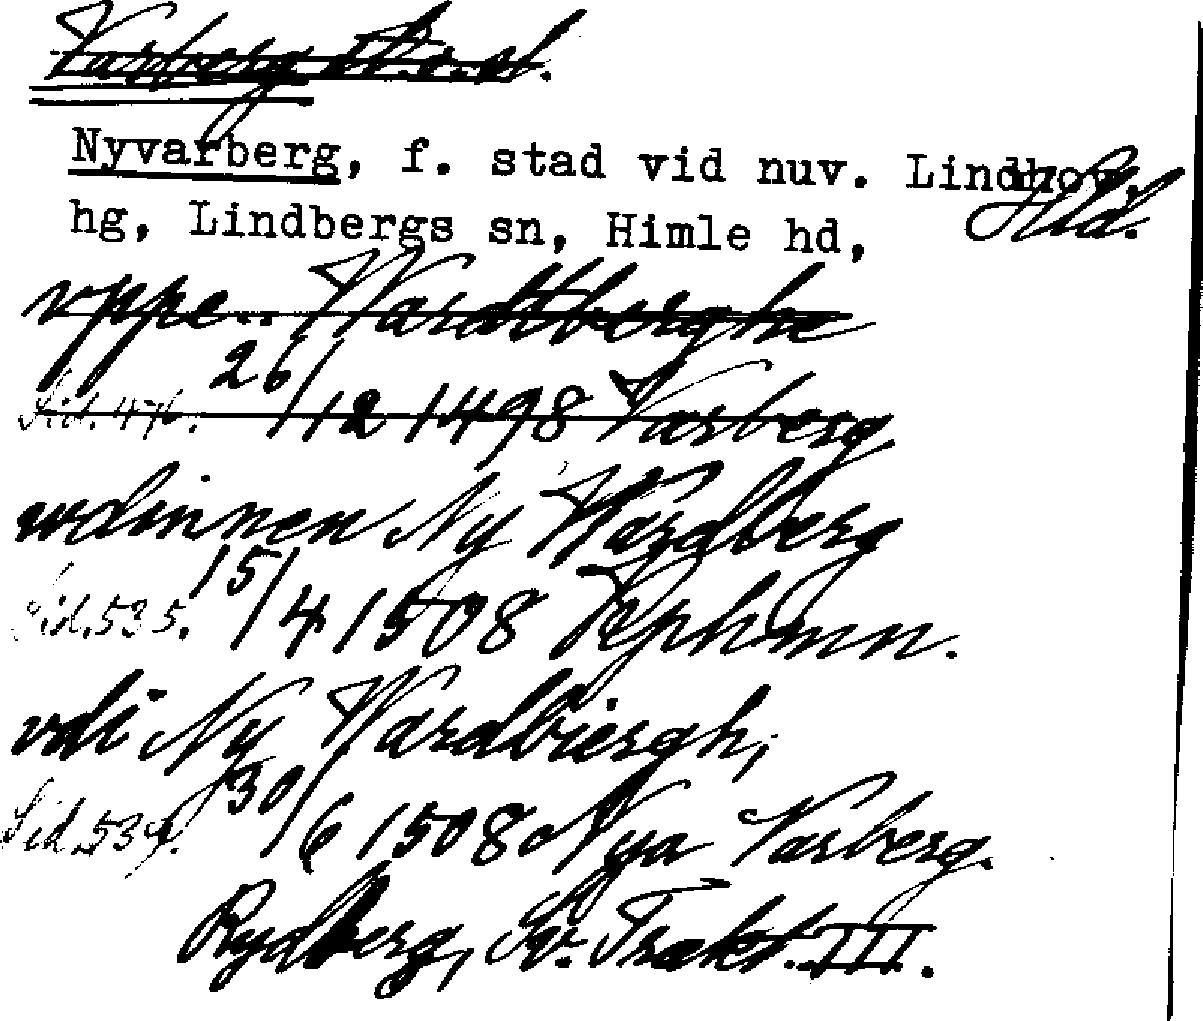 Varberg
Nyvarberg, f. stad vid nuv. Lindhov,
hg, Lindbergs sn, Himle hd, Hld.
vppe.. Wardtberghe
Sid. 474. 26/12 1498 Varberg
vdinnen Ny Wardberg
Sid. 535. 15/4 1508 Kphmn.
vdi Ny Wardbiergh,
Sid. 539. 30/6 1508 Nya Varberg.
Rydberg, Sv. Trakt. III.